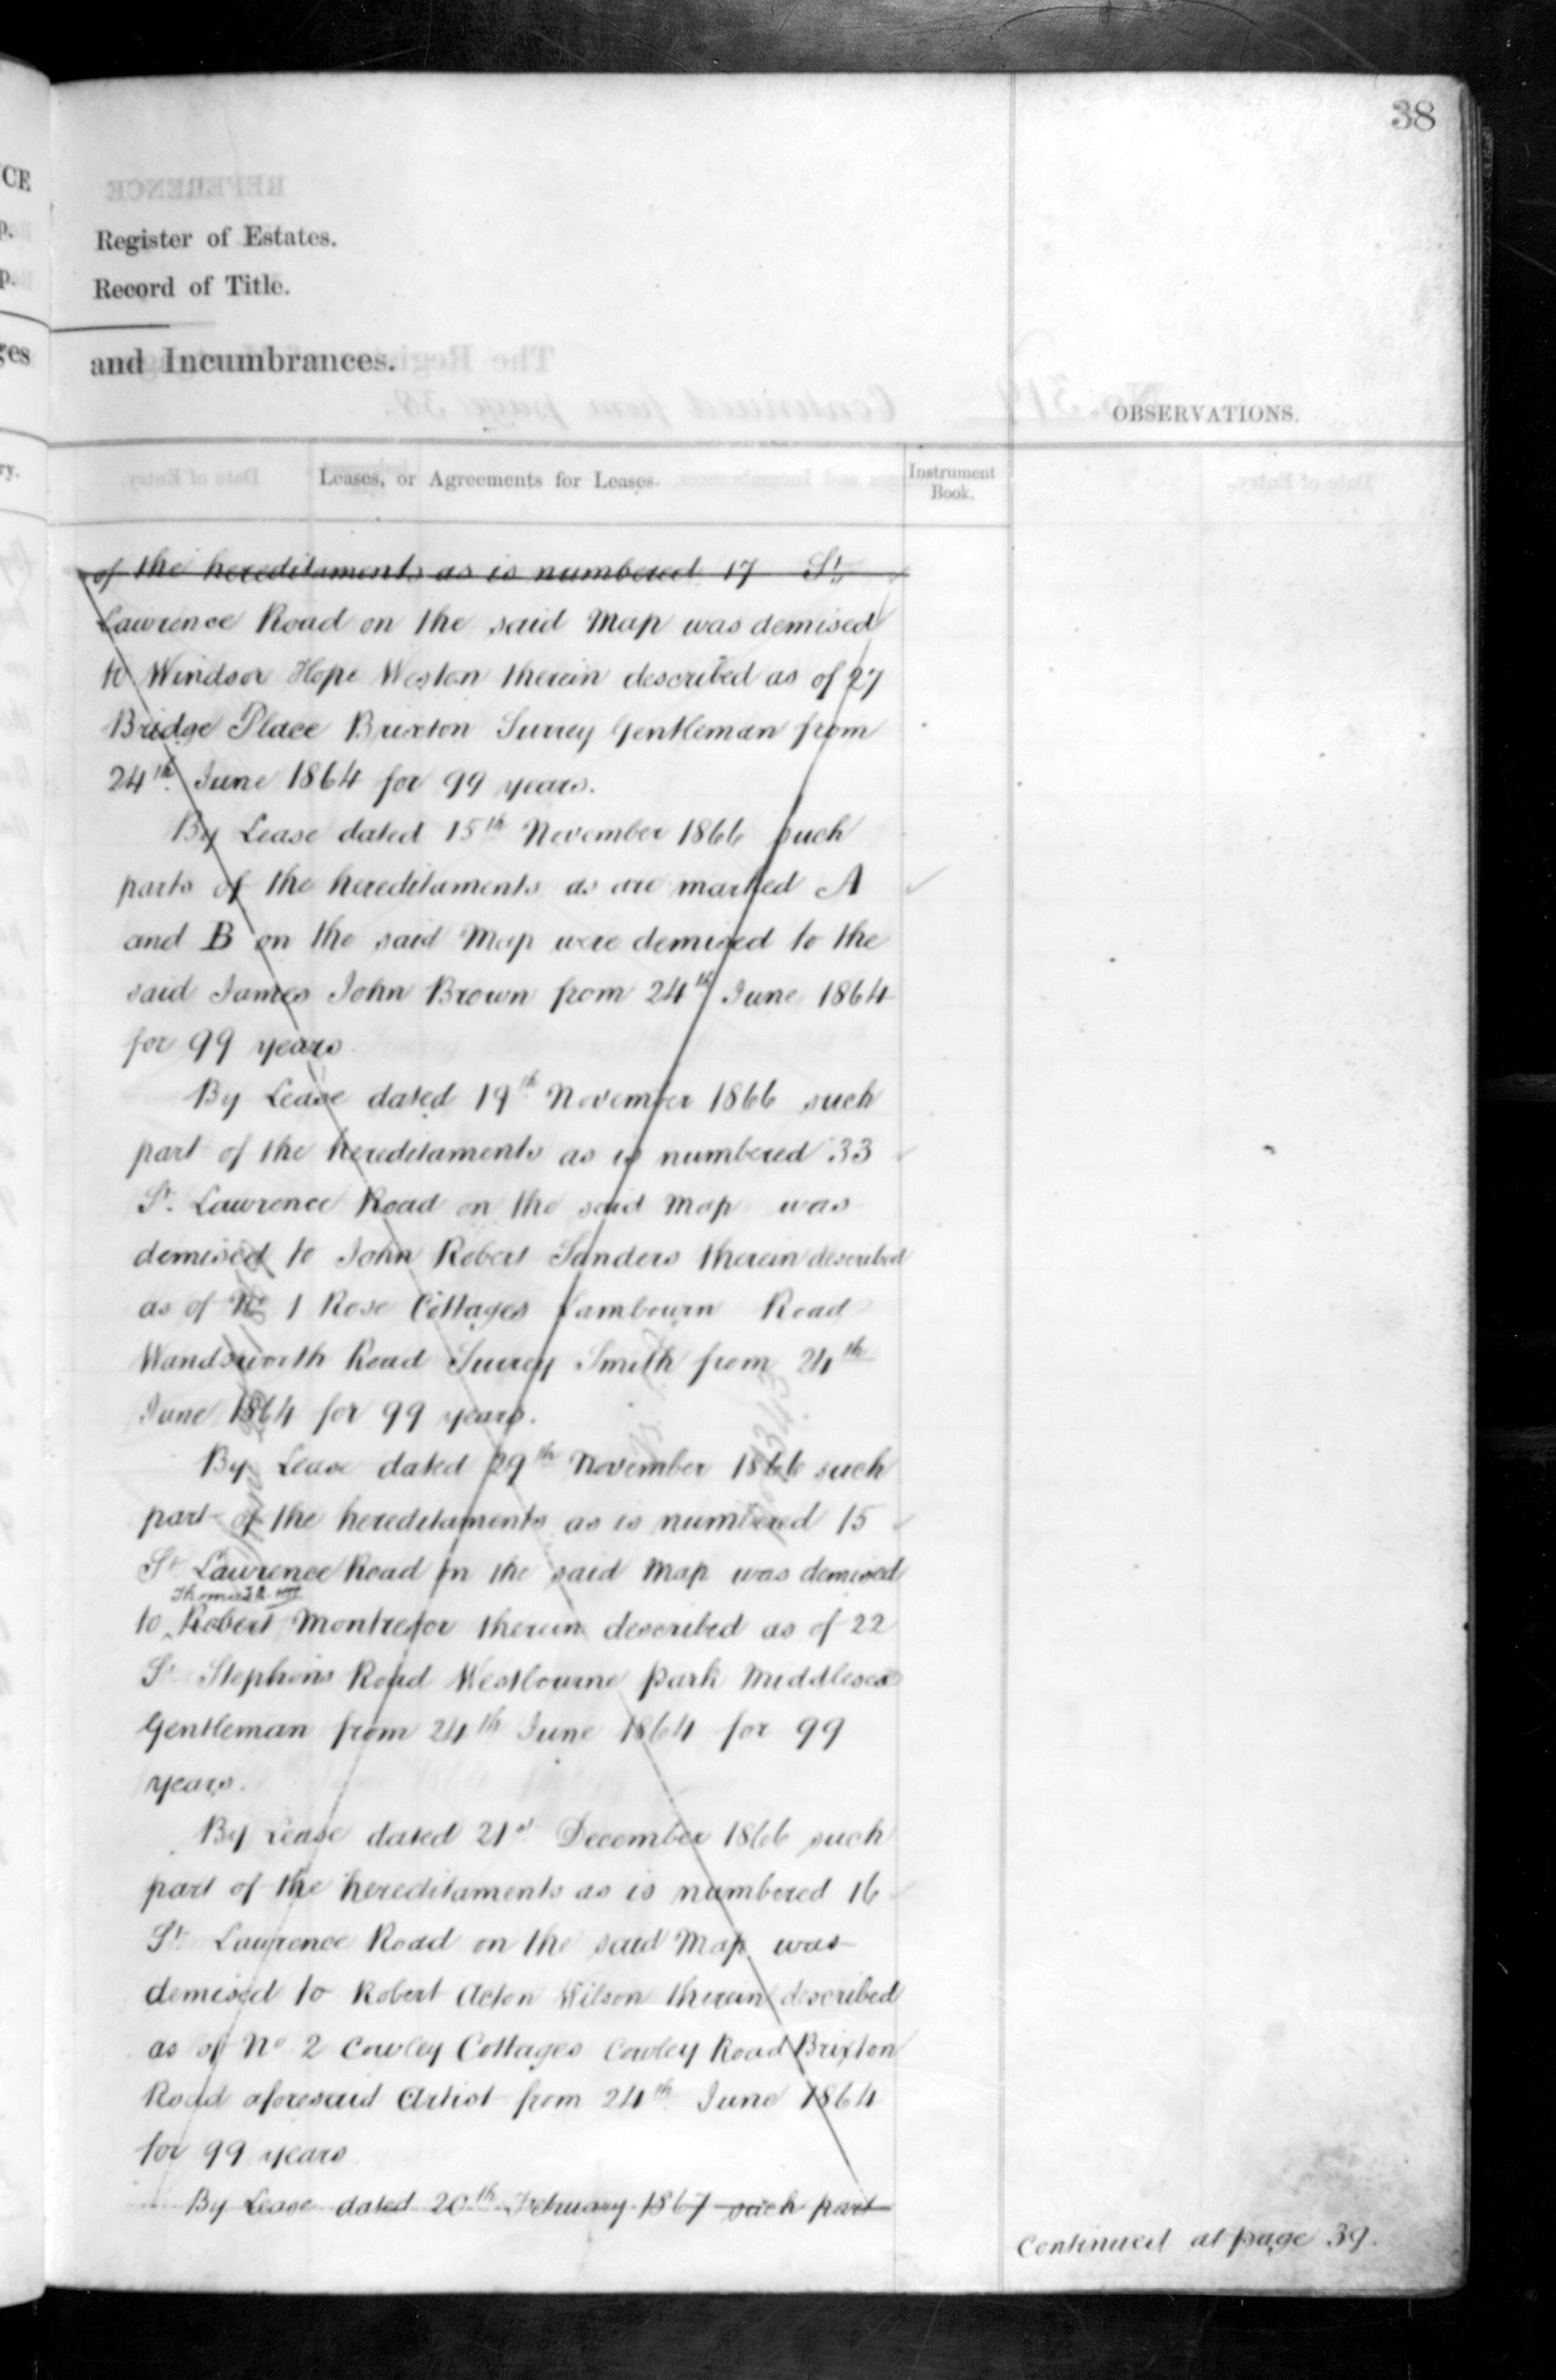 38
CE
Register of Estates.
Record of Title.
and Incumbrances.
ges
OBSERVATIONS.
Leases, or Agreements for Leases.
Instrument
Book.
of the hereditaments as is numbered 17 St.
Lawrence Road on the said Map was demised
to Windsor Hope Weston therein described as of 27
Bridge Place Brixton Surrey Gentleman from
24th June 1864 for 99 years.
By Lease dated 15th November 1866 such
parts of the hereditaments as are marked A
and B on the said Map were demised to the
said James John Brown from 24th June 1864
for 99 years.
By Lease dated 19th November 1866 such
part of the hereditaments as is numbered 33
St. Lawrence Road on the said Map was
demised to John Robert Sanders therein described
as of No 1 Rose Cottages Lambourn Road
Wandsworth Road Surrey Smith from 24th
June 1864 for 99 years.
By Lease dated 29th November 1866 such
part of the hereditaments as is numbered 15
St Lawrence Road on the said Map was demised
Thomas
to Robert Montresor therein described as of 22
St Stephens Road Westbourne Park Middlesex
Gentleman from 24th June 1864 for 99
years.
By Lease dated 21st December 1866 such
part of the hereditaments as is numbered 16
St. Lawrence Road on the said Map was
demised to Robert Acton Wilson therein described
as of No 2 Cowley Cottages Cowley Road Brixton
Road aforesaid Artist from 24th June 1864
for 99 years
By Lease dated 20th February 1867 such part
Continued at page 39.